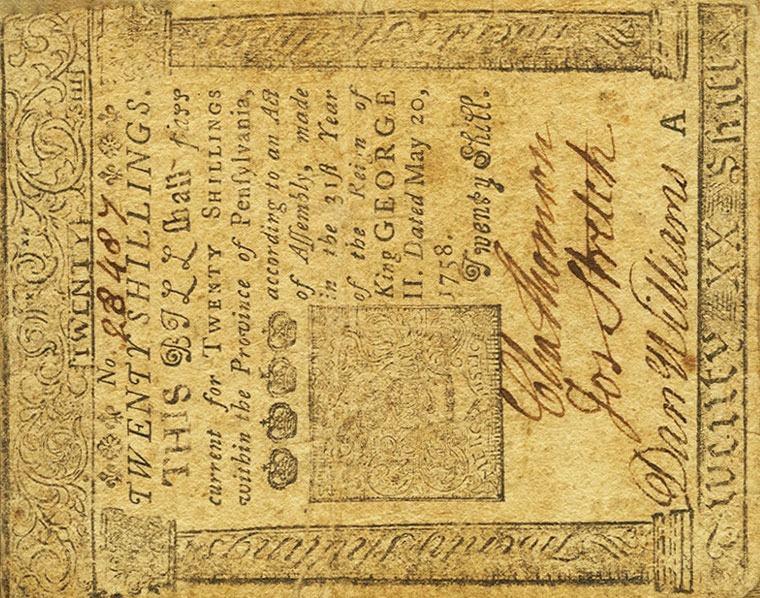 TWENTY Shill
No. 28487
TWENTY SHILLINGS.
THIS BILL ſhall paſs
current for TWENTY SHILLINGS
within the Province of Penſylvania,
according to an Act
of Aſſembly, made
in the 31ſt Year
of the Reign of
King GEORGE
II. Dated May 20,
1758.
Twenty Shill.
Cha Thomson
Jos Stretch
Dan Williams A
Twenty XX Shill
Twenty Shillings
Twenty Shillings